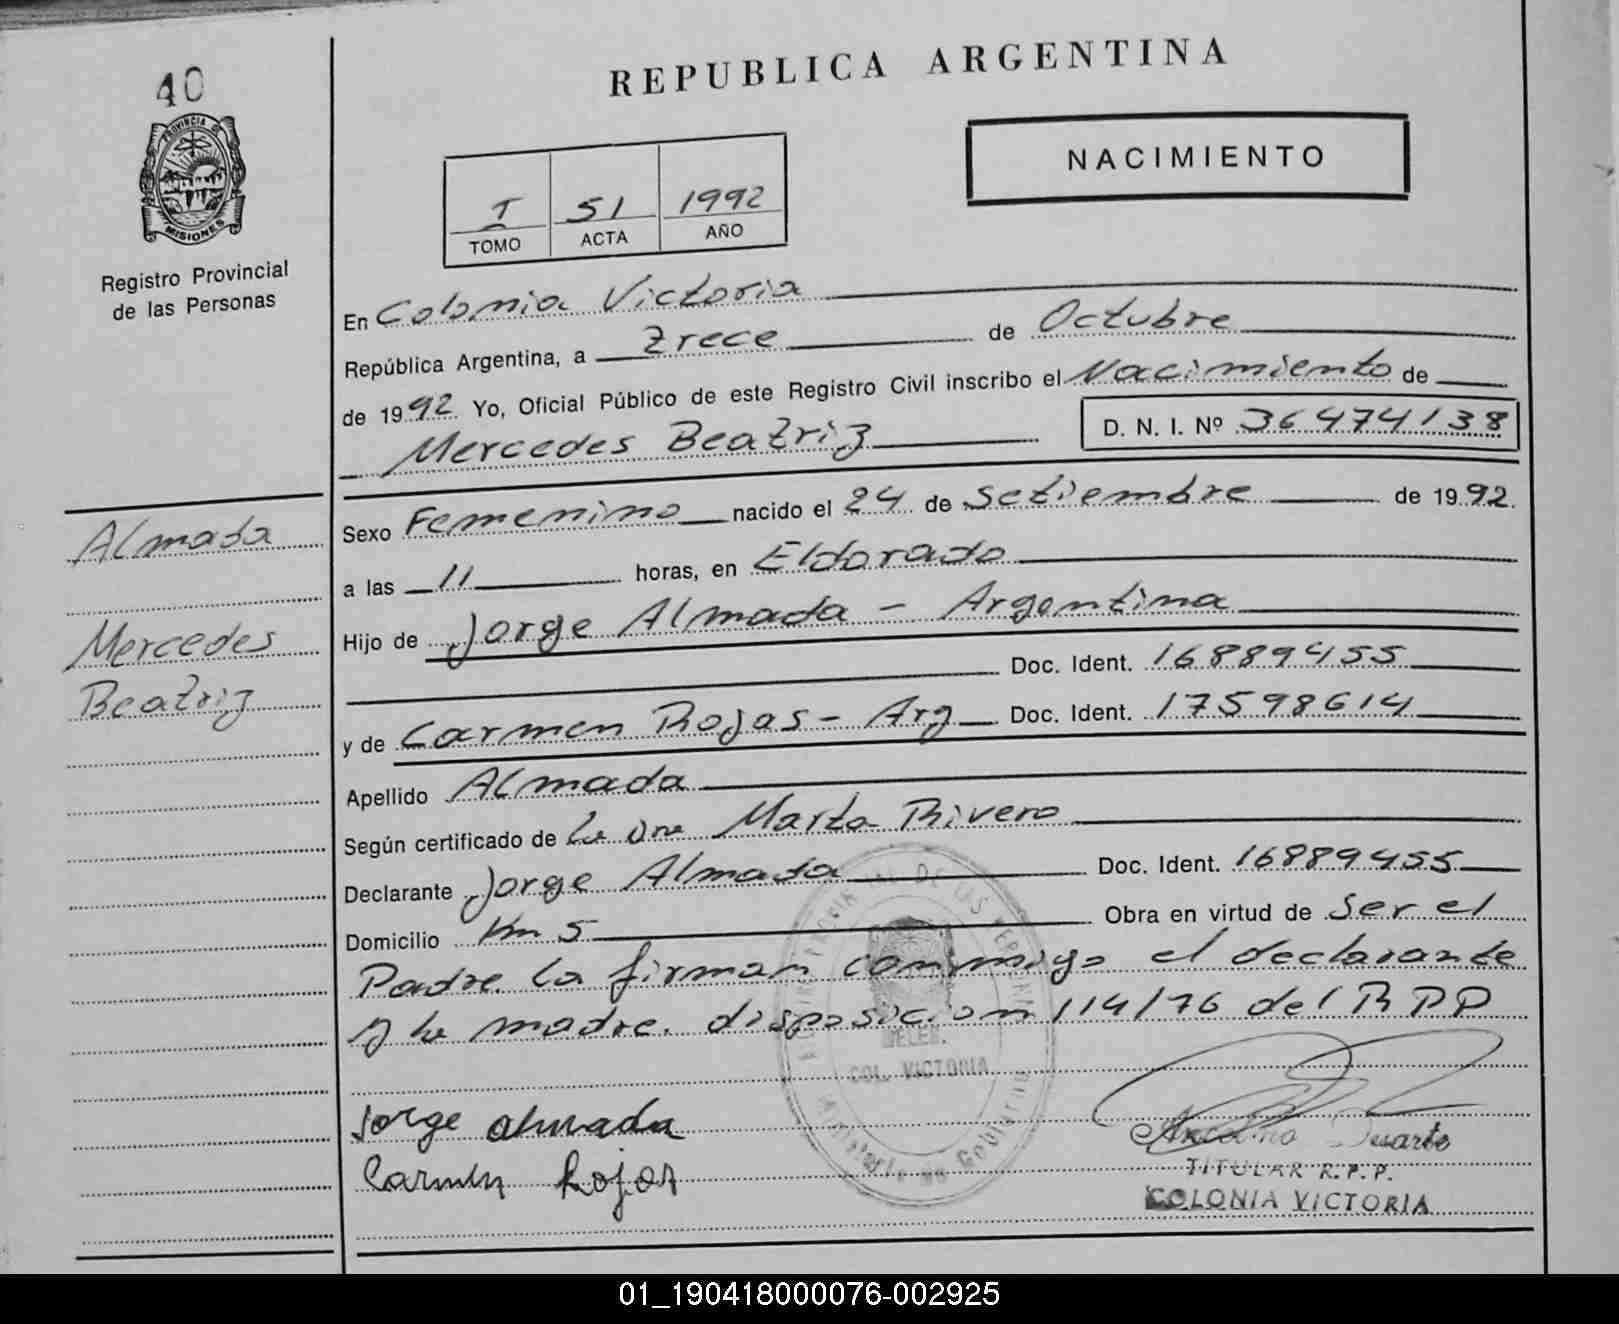 40
PROVINCIA DE
MISIONES
Registro Provincial
de las Personas
Almada
Mercedes
Beatriz
REPUBLICA ARGENTINA
NACIMIENTO
I 51 1992
TOMO ACTA AÑO
En Colonia Victoria
República Argentina, a Trece de Octubre
de 1992 Yo, Oficial Público de este Registro Civil inscribo el Nacimiento de
Mercedes Beatriz D. N. I. Nº 36474138
Sexo Femenino nacido el 24 de Setiembre de 1992.
a las 11 horas, en Eldorado
Hijo de Jorge Almada - Argentina
Doc. Ident. 16889455
y de Carmen Rojas - Arg Doc. Ident. 17598614
Apellido Almada
Según certificado de la Dra Marta Rivero
Declarante Jorge Almada Doc. Ident. 16889455
Domicilio Km 5 Obra en virtud de Ser el
Padre. La firman conmigo el declarante
y la madre. disposicion 114/76 del RPP
DELEG.
COL. VICTORIA
Ministerio de Gobierno
Jorge almada
Carmen Rojas
Duarte
TITULAR R.P.P.
COLONIA VICTORIA
01_190418000076-002925